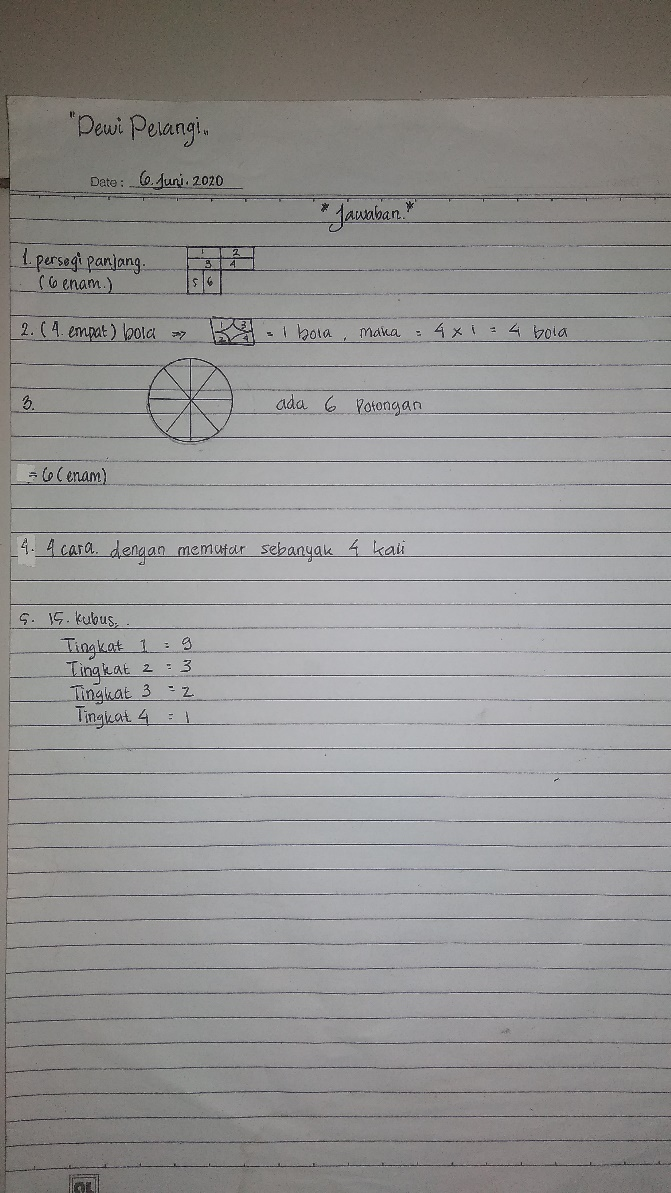 "Dewi Pelangi"
Date: 6. Juni. 2020
* Jawaban.*
1. persegi panjang.
(6 enam.)
1 2
3 4
5 6
2. (4. empat) bola ⇒ 1 3 2 4 = 1 bola, maka = 4 x 1 = 4 bola
3. ada 6 Potongan
= 6 (enam)
4. 4 cara. dengan memutar sebanyak 4 kali
5. 15. kubus.
Tingkat 1 = 9
Tingkat 2 = 3
Tingkat 3 = 2
Tingkat 4 = 1